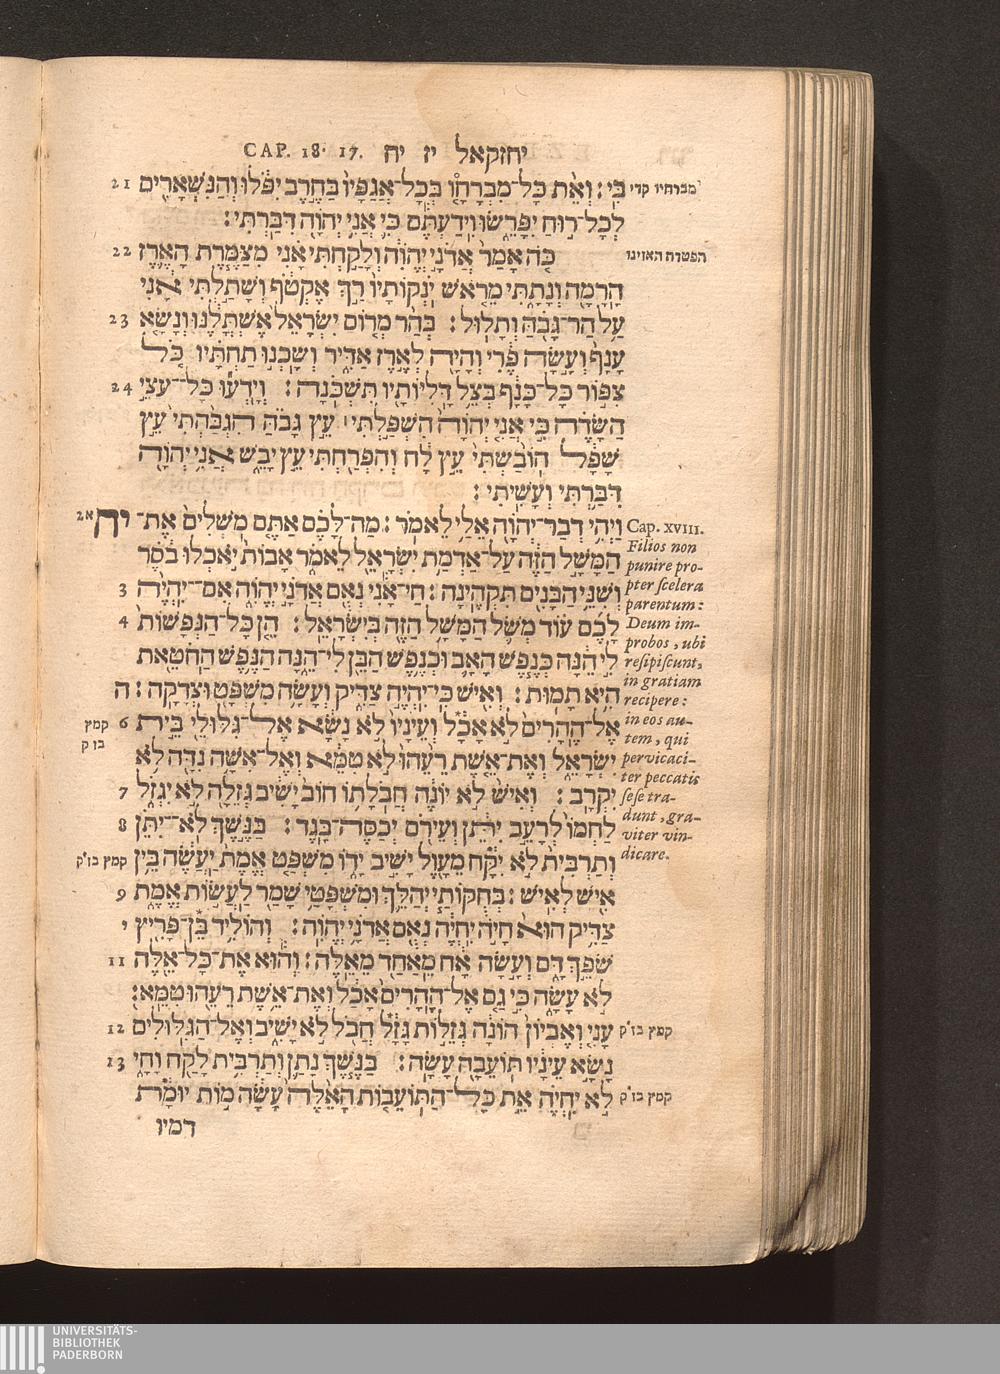 CAP. 18. 17. יחזקאל יז יח
21 בִּי׃ וְאֵת כָּל־מִבְרָחָו בְּכָל־אֲגַפָּיו בַּחֶרֶב יִפֹּלוּ וְהַנִּשְׁאָרִים
מברחיו קרי
לְכָל־רוּחַ יִפָּרֵשׂוּ וִידַעְתֶּם כִּי אֲנִי יְהוָה דִּבַּרְתִּי׃
22 כֹּה אָמַר אֲדֹנָי יֱהוִה וְלָקַחְתִּי אָנִי מִצַּמֶּרֶת הָאֶרֶז
הפטרת האזינו
הָרָמָה וְנָתָתִּי מֵרֹאשׁ יֹנְקוֹתָיו רַךְ אֶקְטֹף וְשָׁתַלְתִּי אָנִי
23 עַל הַר־גָּבֹהַּ וְתָלוּל׃ בְּהַר מְרוֹם יִשְׂרָאֵל אֶשְׁתֳּלֶנּוּ וְנָשָׂא
עָנָף וְעָשָׂה פֶרִי וְהָיָה לְאֶרֶז אַדִּיר וְשָׁכְנוּ תַחְתָּיו כֹּל
24 צִפּוֹר כָּל־כָּנָף בְּצֵל דָּלִיּוֹתָיו תִּשְׁכֹּנָּה׃ וְיָדְעוּ כָּל־עֲצֵי
הַשָּׂדֶה כִּי אֲנִי יְהוָה הִשְׁפַּלְתִּי ׀ עֵץ גָּבֹהַּ הִגְבַּהְתִּי עֵץ
שָׁפָל הוֹבַשְׁתִּי עֵץ לָח וְהִפְרַחְתִּי עֵץ יָבֵשׁ אֲנִי יְהוָה
דִּבַּרְתִּי וְעָשִׂיתִי׃
אב יח וַיְהִי דְבַר־יְהוָה אֵלַי לֵאמֹר׃ מַה־לָּכֶם אַתֶּם מֹשְׁלִים אֶת־
הַמָּשָׁל הַזֶּה עַל־אַדְמַת יִשְׂרָאֵל לֵאמֹר אָבוֹת יֹאכְלוּ בֹסֶר
3 וְשִׁנֵּי הַבָּנִים תִּקְהֶינָה׃ חַי־אָנִי נְאֻם אֲדֹנָי יֱהוִה אִם־יִהְיֶה
4 לָכֶם עוֹד מְשֹׁל הַמָּשָׁל הַזֶּה בְּיִשְׂרָאֵל׃ הֵן כָּל־הַנְּפָשׁוֹת
לִי הֵנָּה כְּנֶפֶשׁ הָאָב וּכְנֶפֶשׁ הַבֵּן לִי־הֵנָּה הַנֶּפֶשׁ הַחֹטֵאת
ה הִיא תָמוּת׃ וְאִישׁ כִּי־יִהְיֶה צַדִּיק וְעָשָׂה מִשְׁפָּט וּצְדָקָה׃
6 אֶל־הֶהָרִים לֹא אָכָל וְעֵינָיו לֹא נָשָׂא אֶל־גִּלּוּלֵי בֵּית
קמץ
בז ק
יִשְׂרָאֵל וְאֶת־אֵשֶׁת רֵעֵהוּ לֹא טִמֵּא וְאֶל־אִשָּׁה נִדָּה לֹא
7 יִקְרָב׃ וְאִישׁ לֹא יוֹנֶה חֲבֹלָתוֹ חוֹב יָשִׁיב גְּזֵלָה לֹא יִגְזֹל
8 לַחְמוֹ לְרָעֵב יִתֵּן וְעֵירֹם יְכַסֶּה־בָּגֶד׃ בַּנֶּשֶׁךְ לֹא־יִתֵּן
וְתַרְבִּית לֹא יִקָּח מֵעָוֶל יָשִׁיב יָדוֹ מִשְׁפַּט אֱמֶת יַעֲשֶׂה בֵּין
קמץ בז"ק
9 אִישׁ לְאִישׁ׃ בְּחֻקּוֹתַי יְהַלֵּךְ וּמִשְׁפָּטַי שָׁמַר לַעֲשׂוֹת אֱמֶת
י צַדִּיק הוּא חָיֹה יִחְיֶה נְאֻם אֲדֹנָי יֱהוִה׃ וְהוֹלִיד בֵּן־פָּרִיץ
11 שֹׁפֵךְ דָּם וְעָשָׂה אָח מֵאַחַד מֵאֵלֶּה׃ וְהוּא אֶת־כָּל־אֵלֶּה
לֹא עָשָׂה כִּי גַם אֶל־הֶהָרִים אָכַל וְאֶת־אֵשֶׁת רֵעֵהוּ טִמֵּא׃
12 עָנִי וְאֶבְיוֹן הוֹנָה גְּזֵלוֹת גָּזָל חֲבֹל לֹא יָשִׁיב וְאֶל־הַגִּלּוּלִים
קמץ בז"ק
13 נָשָׂא עֵינָיו תּוֹעֵבָה עָשָׂה׃ בַּנֶּשֶׁךְ נָתַן וְתַרְבִּית לָקַח וָחָי
לֹא יִחְיֶה אֵת כָּל־הַתּוֹעֵבוֹת הָאֵלֶּה עָשָׂה מוֹת יוּמָת
קמץ בז"ק
דמיו
Cap. XVIII.
Filios non
punire pro-
pter scelera
parentum:
Deum im-
probos, ubi
resipiscunt,
in gratiam
recipere:
in eos au-
tem, qui
pervicaci-
ter peccatis
sese tra-
dunt, gra-
viter vin-
dicare.
UNIVERSITÄTS-
BIBLIOTHEK
PADERBORN